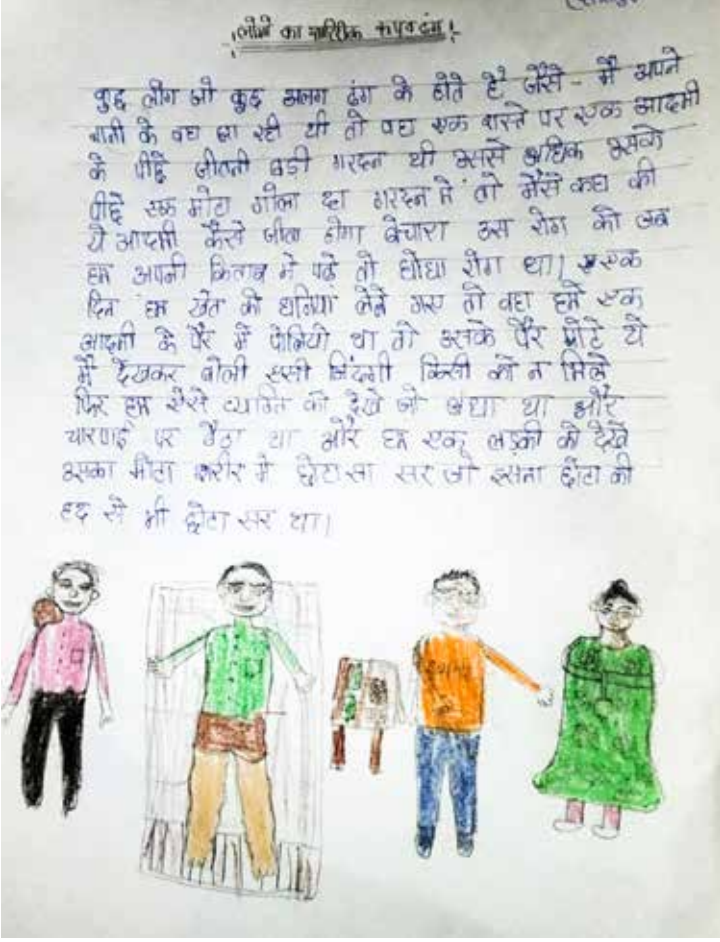 लोगो का शारीरिक
कुछ लोग जो कुछ अलग ढंग के होते है जैसे - मै अपने
नानी के वहा जा रही थी तो वहा एक रास्ते पर एक आदमी
के पीछे जीतनी बडी गरदन थी उससे अधिक उसके
पीछे एक मोटा गोला था गरदन में तो मैंसे कहा की
ये आदमी कैसे जीता होगा बेचारा उस रोग को जब
हम अपनी किताब मे पढ़े तो घोघा रोग था। एक
दिन हम खेत की धनिया लेने गए तो वहा हमे एक
आदमी के पैर में पोलियो था तो उसके पैर मोटे थे
मै देखकर बोली एसी जिंदगी किसी को न मिले
फिर हम ऐसे व्यक्ति को देखे जो अंधा था और
चारपाई पर बैठा था और हम एक लड़की को देखे
उसका मोटा शरीर मे छोटा सा सर जो इतना छोटा की
हद से भी छोटा सर था।